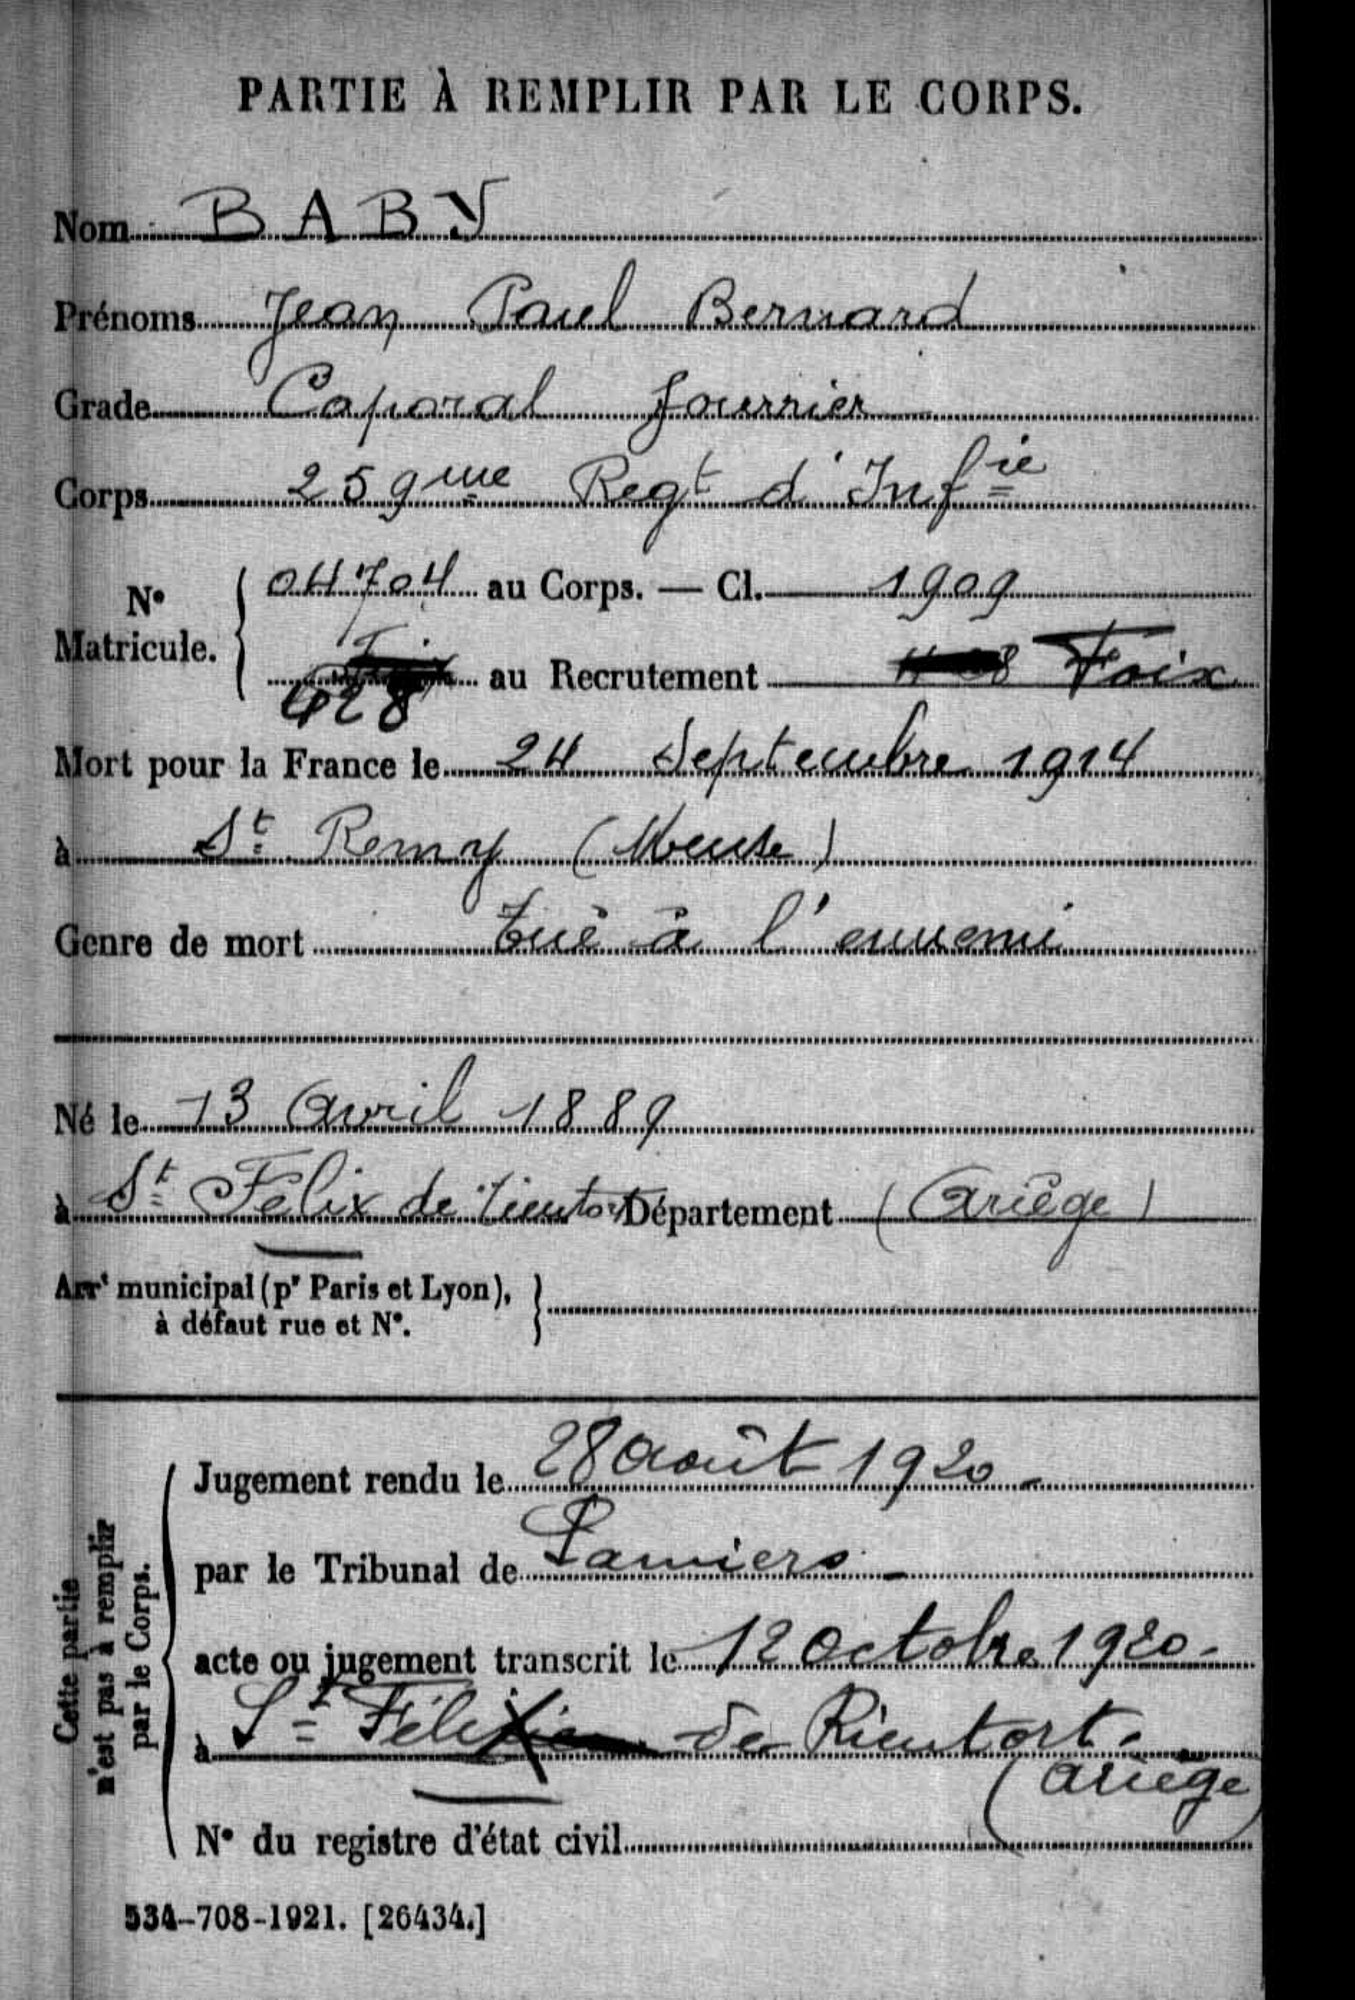 PARTIE À REMPLIR PAR LE CORPS.
Nom BABY
Prénoms Jean Paul Bernard
Grade Caporal fourrier
Corps 259ème Regt d'Infie
N° Matricule. 04704 au Corps. — Cl. 1909
428 au Recrutement Foix
Mort pour la France le 24 Septembre 1914
à St Remy (Meuse)
Genre de mort tué à l'ennemi
Né le 13 Avril 1889
à St Félix de Département (Ariège)
Arrt municipal (pr Paris et Lyon),
à défaut rue et N°.
Cette partie
n'est pas à remplir
par le Corps.
Jugement rendu le 28 août 1920 -
par le Tribunal de Pamiers -
acte ou jugement transcrit le 12 octobre 1920 -
à St Félix de Rieutort.
(Ariège)
N° du registre d'état civil
534-708-1921. [26434.]